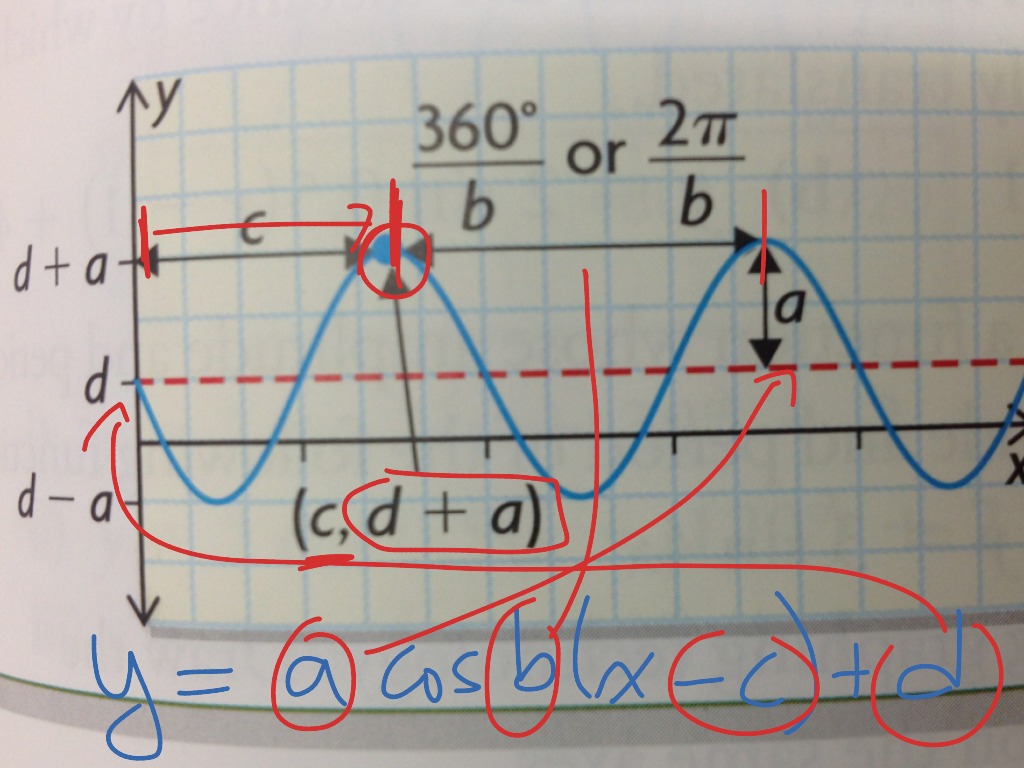 y
360° or 2π
b b
c
d + a
a
d
x
d − a
(c, d + a)
y = a cos b(x − c) + d